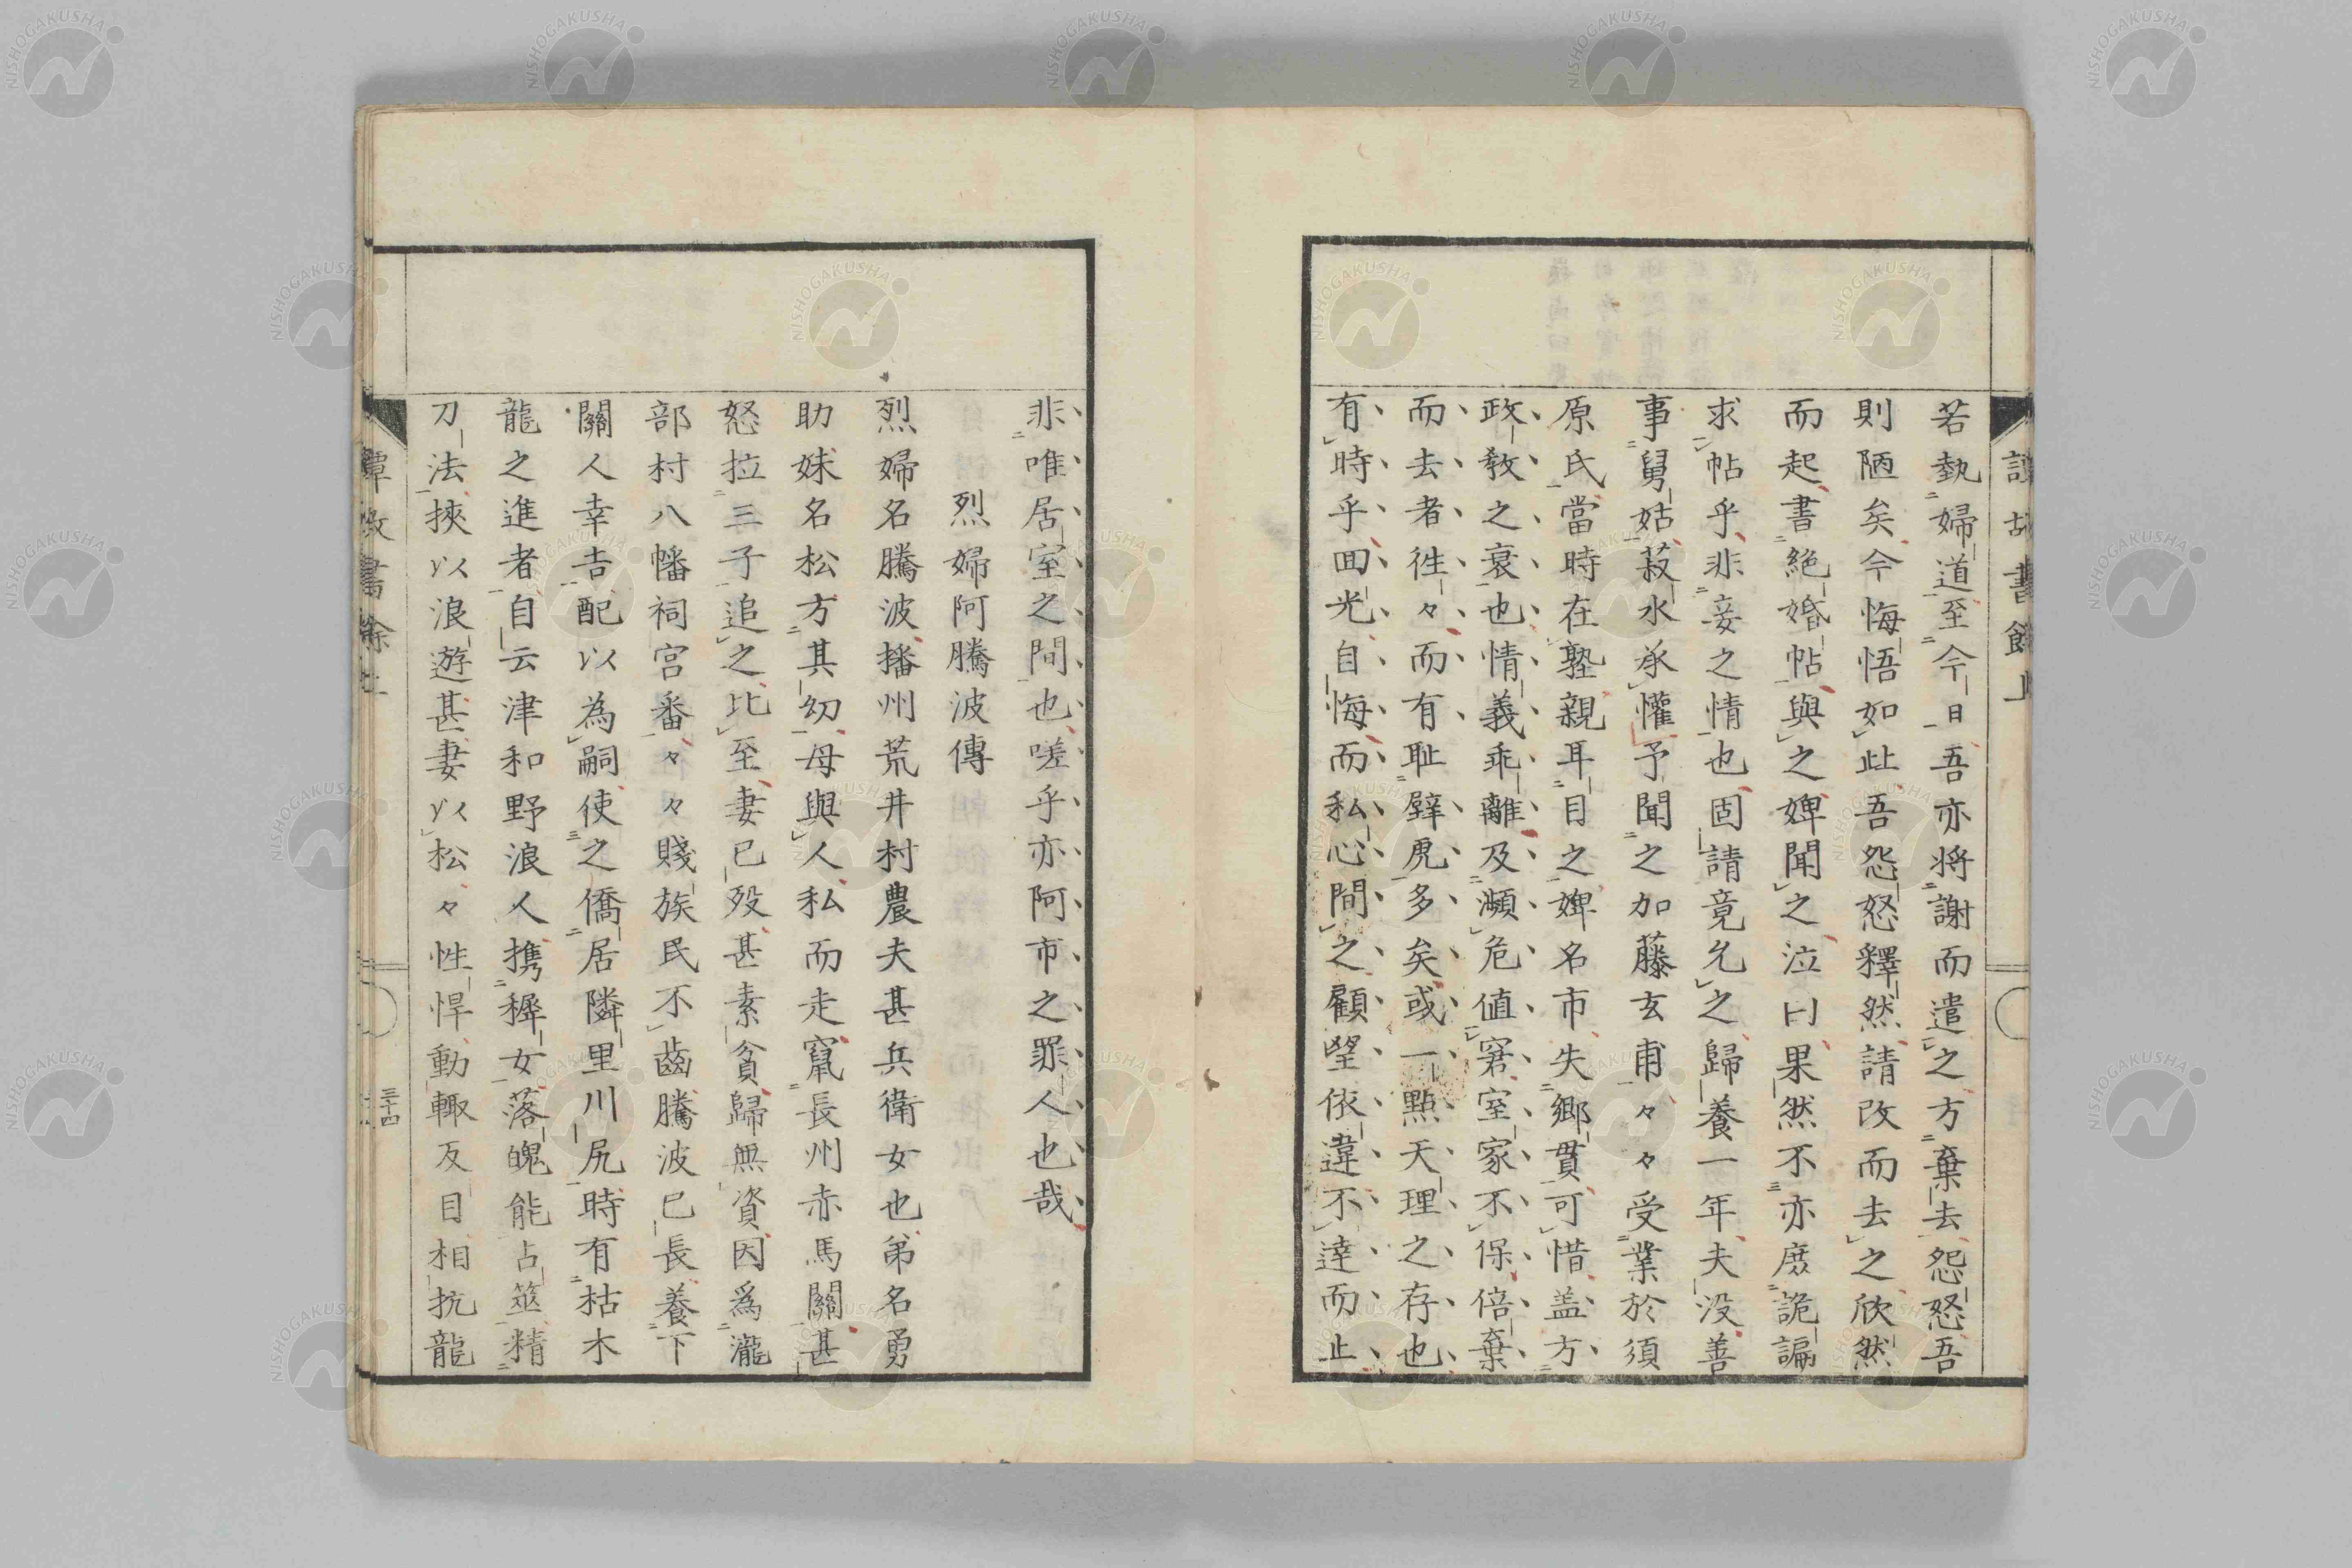 若執婦道至今日吾亦將謝而遣之方棄去怨怒吾
則陋矣今悔悟如此吾怨怒釋然請改而去之欣然
而起書絶婚帖與之婢聞之泣曰果然不亦庶詭諞
求帖乎非妾之情也固請竟允之歸養一年夫没善
事舅姑菽水承懽予聞之加藤玄甫々々受業於須
原氏當時在塾親耳目之婢名市失鄉貫可惜盖方
政教之衰也情義乖離及瀕危値窘室家不保倍棄
而去者徃々而有耻躄虎多矣或一點天理之存也
有時乎回光自悔而私心間之顧望依違不達而止
非唯居室之間也嗟乎亦阿市之罪人也哉
烈婦阿騰波傳
烈婦名騰波播州荒井村農夫甚兵衛女也弟名勇
助妹名松方其幼母與人私而走竄長州赤馬關甚
怒拉三子追之比至妻已歿甚素貧歸無資因爲瀧
部村八幡祠宮番々々賤族民不齒騰波已長養下
關人幸吉配以為嗣使之僑居隣里川尻時有枯木
龍之進者自云津和野浪人携穉女落魄能占筮精
刀法挾以浪遊甚妻以松々性悍動輙反目相抗龍
三十四